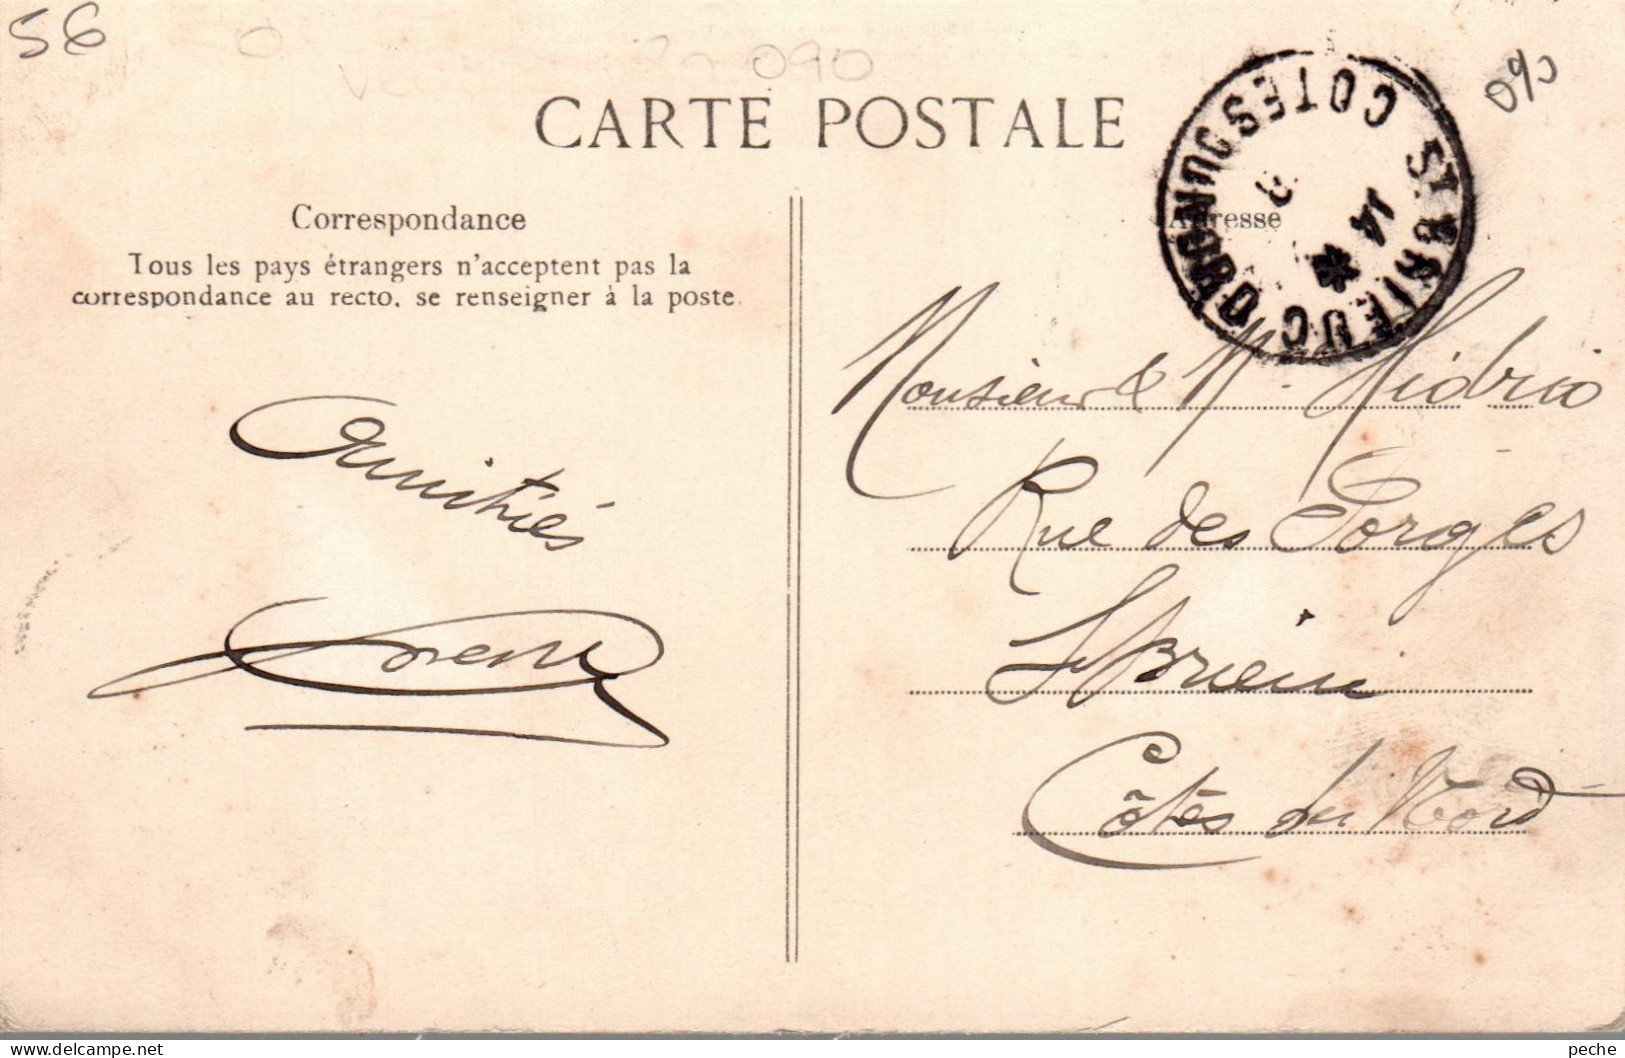 56
090
090
CARTE POSTALE
Correspondance
Tous les pays étrangers n'acceptent pas la
correspondance au recto, se renseigner à la poste.
Adresse
ST BRIEUC
COTES DU NORD
14
Amitiés
Monsieur & M. Hidrio
Rue des Forges
St Brieuc
Côtes du Nord
peche